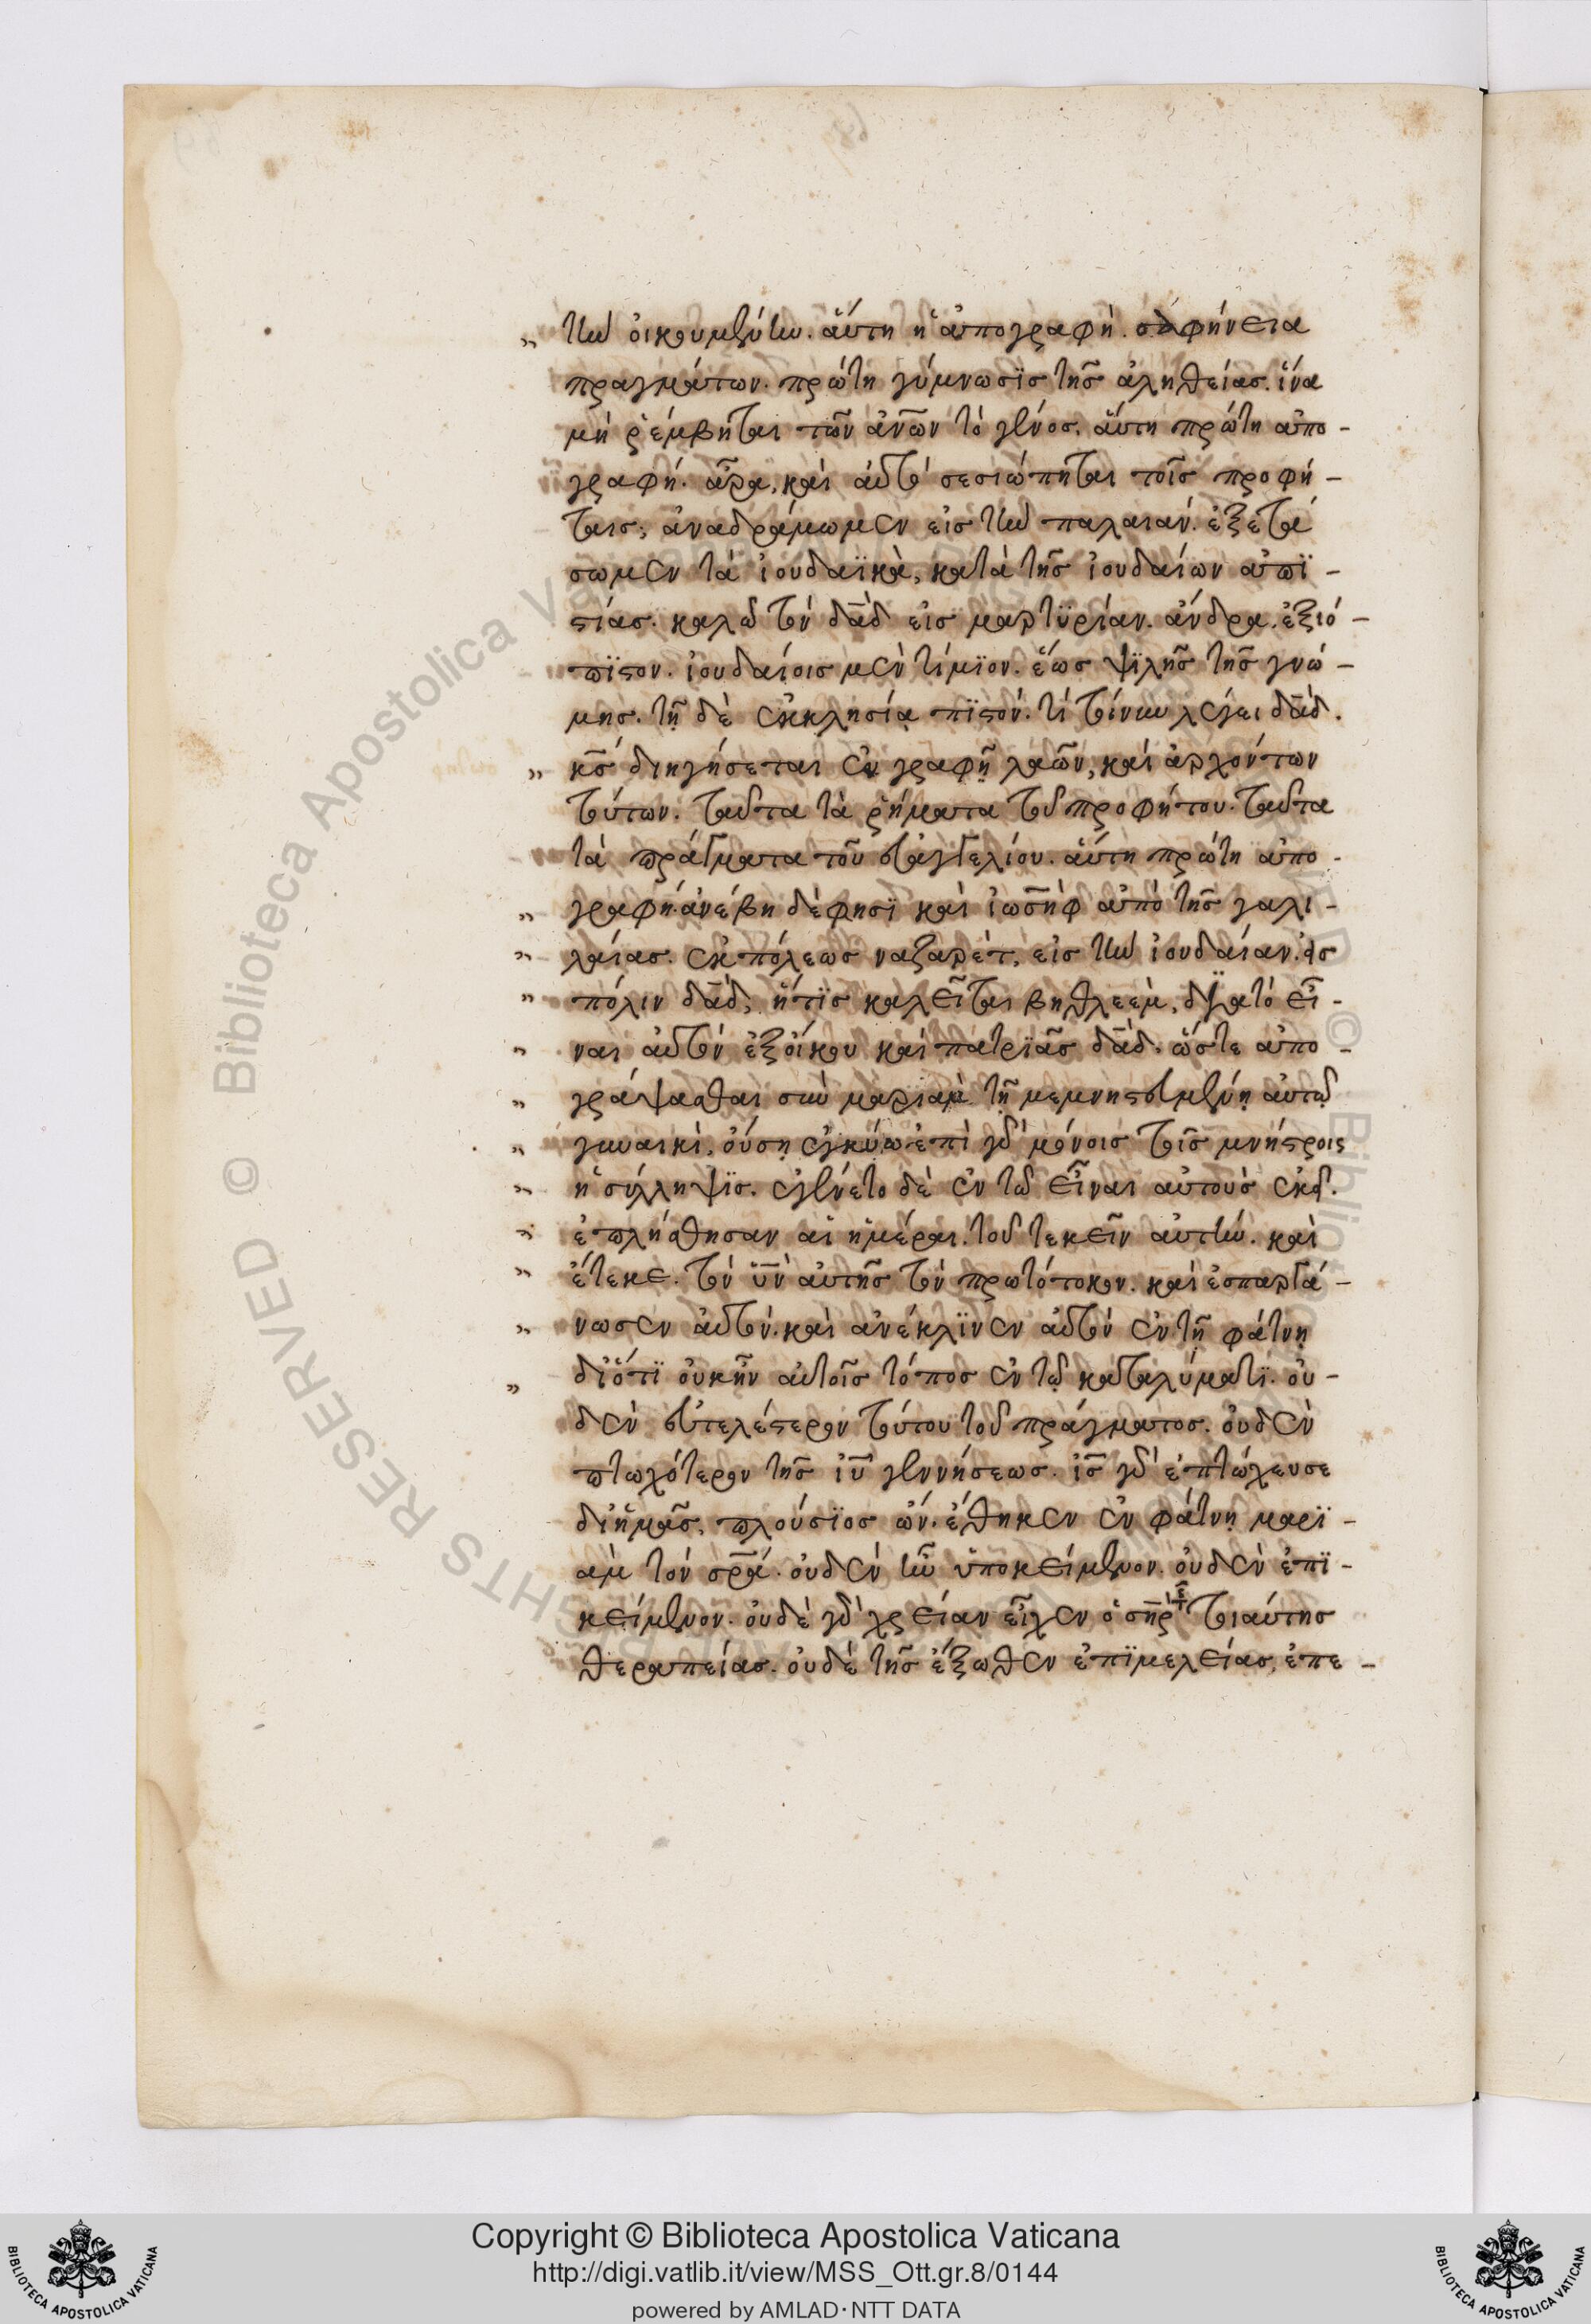 τὴν οἰκουμένην. αὕτη ἡ ἀπογραφὴ. σαφήνεια
πραγμάτων. πρώτη γύμνωσϊς τῆς ἀληθείας. ἵνα
μὴ ῥέμβηται τῶν ἀνῶν τὸ γένος. αὕτη πρώτη ἀπο-
γραφή. ἆρα, καὶ αὐτὸ σεσιώπηται τοῖς προφή-
ταις; ἀναδράμωμεν εἰς τὴν παλαιάν. ἐξετά
σωμεν τὰ ἰουδαϊκὰ, κατὰ τῆς ἰουδαίων ἀπϊ-
στίας. καλῶ τὸν δᾱδ εἰς μαρτϋρίαν. ἄνδρα. ἐξιό-
πϊστον. ἰουδαίοις μὲν τίμϊον. ἕως ψϊλῆς τῆς γνώ-
μης. τῇ δὲ ἐκκλησίᾳ πϊστόν. τί τοίνυν λέγει δᾱδ.
κς διηγήσεται ἐν γραφῇ λαῶν, καὶ ἀρχόντων
τούτων. ταῦτα τὰ ῥήματα τοῦ προφήτου. ταῦτα
τὰ πράγματα τοῦ εὐαγγελίου. αὕτη πρώτη ἀπο-
γραφή. ἀνέβη δὲ φησϊ καὶ ἰωσὴφ ἀπὸ τῆς γαλι-
λαίας. ἐκ πόλεως ναζαρέτ, εἰς τὴν ἰουδαίαν. εἰς
πόλιν δᾱδ, ἥτϊς καλεῖται βηθλεεὲμ, διὰ τὸ εἶ-
ναι αὐτὸν ἐξ οἴκου καὶ πατρϊᾶς δᾱδ. ὥστε ἀπο-
γράψασθαι σὺν μαριὰμ τῇ μεμνηστευμένῃ αὐτῷ
γυναικὶ, οὔσῃ ἐγκύω. ἐπὶ γὰρ μόνοις τοῖς μνήστροις
ἡ σύλληψϊς. ἐγένετο δὲ ἐν τῶ εἶναι αὐτοὺς ἐκεῖ.
ἐπλήσθησαν αἱ ἡμέραι. τοῦ τεκεῖν αὐτήν. καὶ
ἔτεκε. τὸν ὑν αὐτῆς τὸν πρωτότοκον. καὶ ἐσπαργά-
νωσεν αὐτόν. καὶ ἀνέκλϊνεν αὐτὸν ἐν τῇ φάτνῃ
διότϊ οὐκ ἦν αὐτοῖς τόπος ἐν τῷ καταλύματϊ. οὐ-
δὲν εὐτελέστερον τούτου τοῦ πράγματος. οὐδὲν
πτωχότερον τῆς ἰῡ γεννήσεως. ἰς γὰρ ἐπτώχευσε
δι' ἡμᾶς, πλούσϊος ὤν. ἔθηκεν ἐν φάτνῃ μαρϊ-
ὰμ τὸν σρα. οὐδὲν ἦν ὑποκείμενον. οὐδὲν ἐπϊ-
κείμενον. οὐδὲ γὰρ χρείαν εἶχεν ὁ σηρ τῆς τοιαύτης
θεραπείας. οὐδὲ τῆς ἔξωθεν ἐπϊμελείας, ἐπε-
Copyright © Biblioteca Apostolica Vaticana
http://digi.vatlib.it/view/MSS_Ott.gr.8/0144
powered by AMLAD·NTT DATA